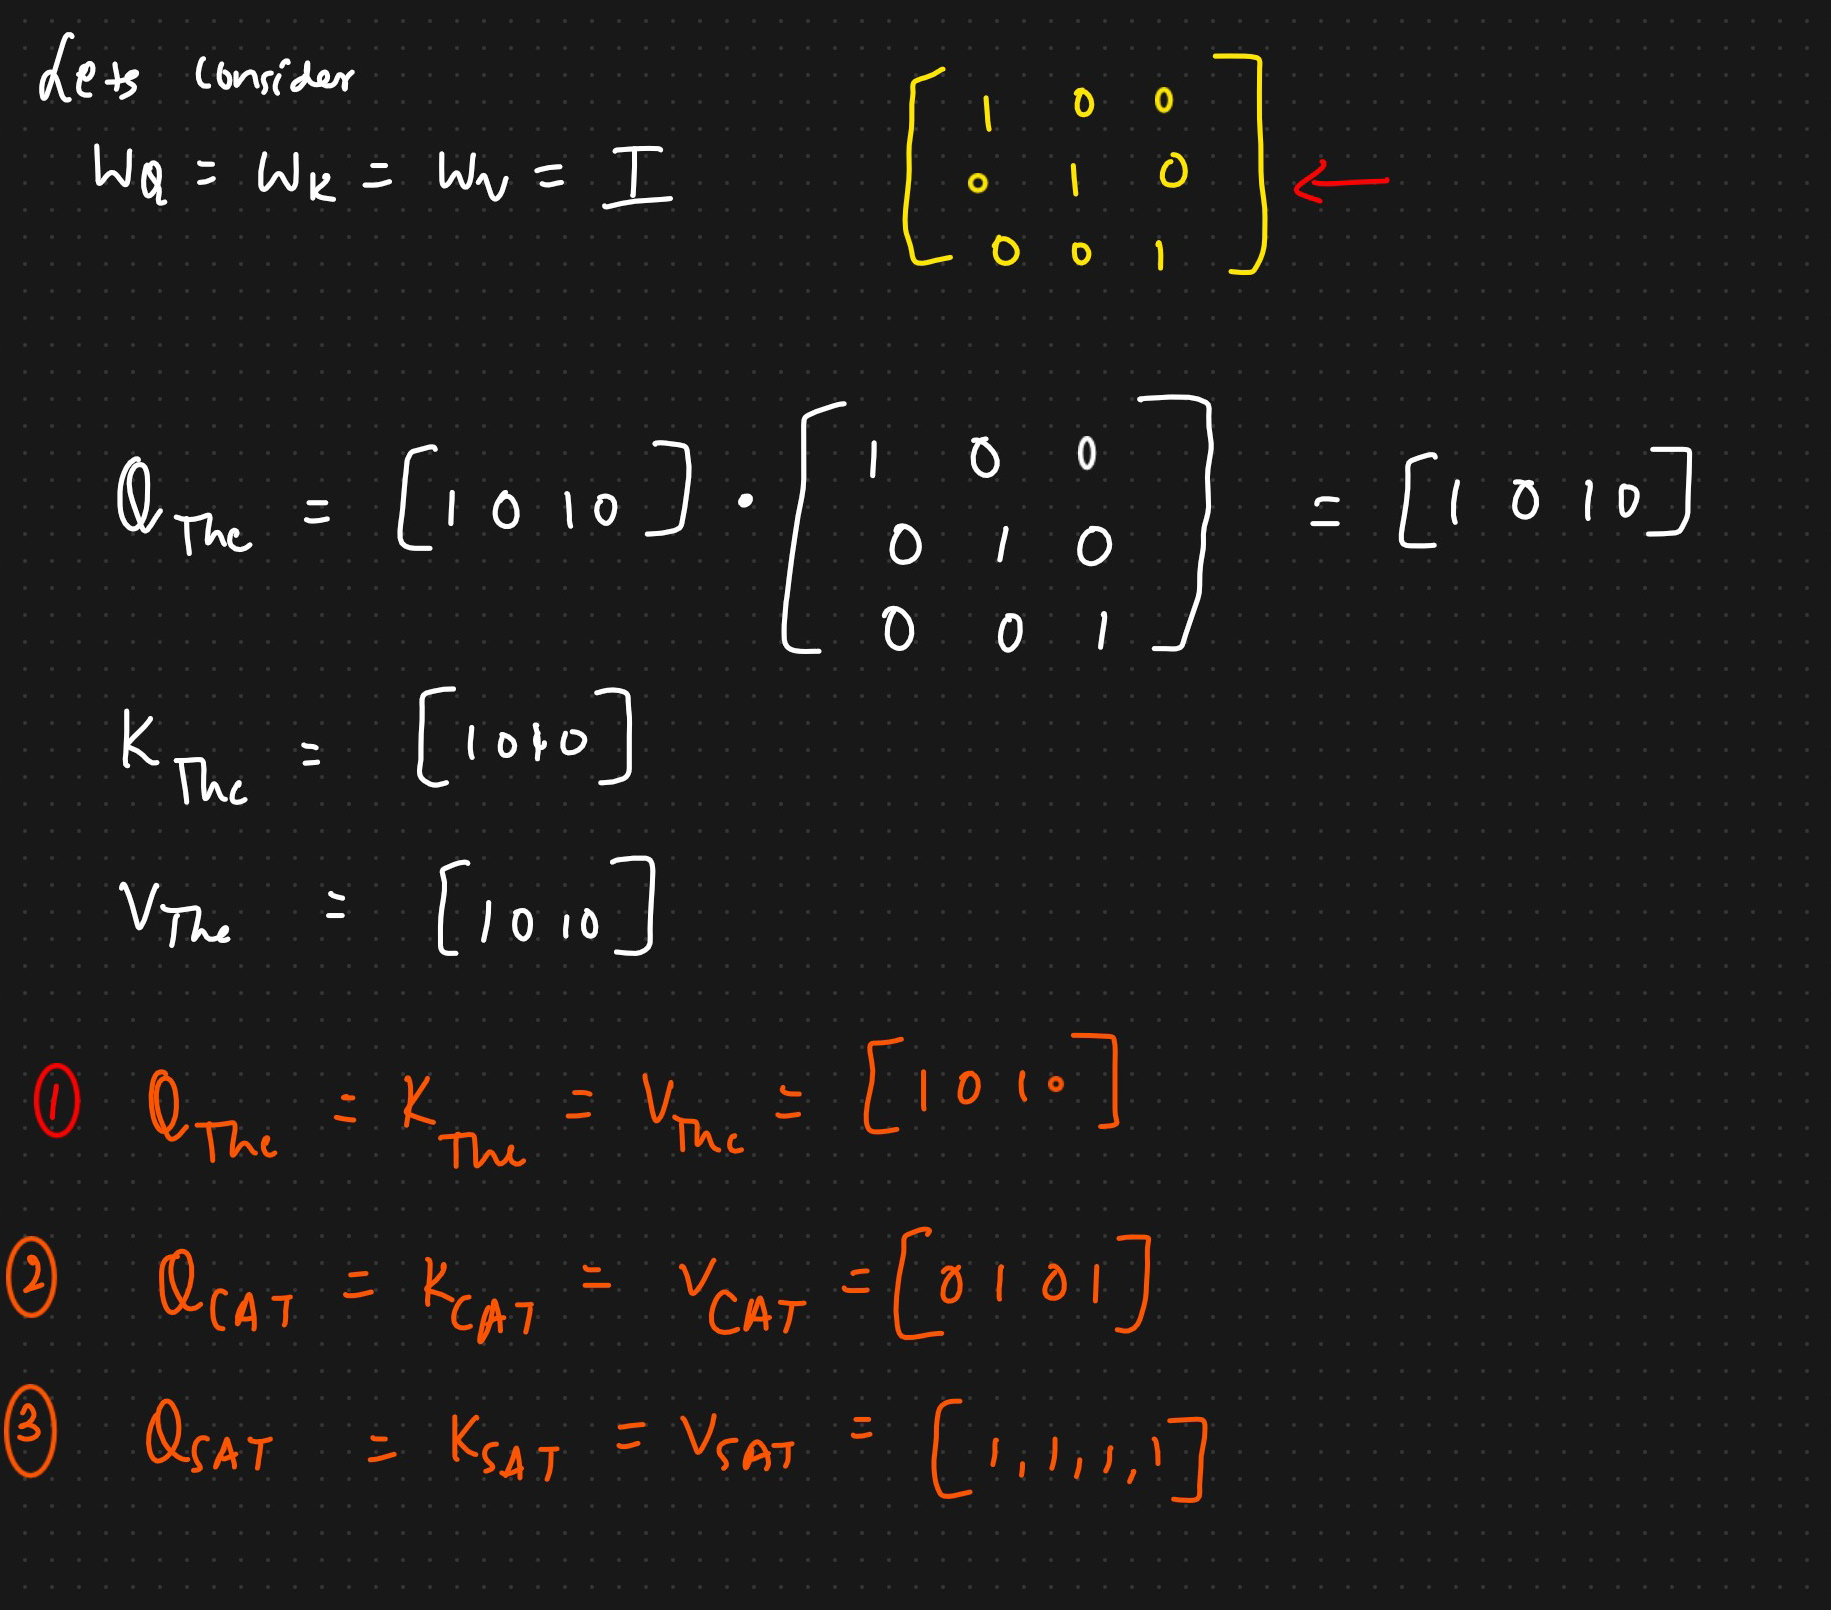 Lets Consider
WQ = WK = WV = I
1 0 0
0 1 0
0 0 1
QThe = [1 0 1 0] · [1 0 0 = [1 0 1 0]
0 1 0
0 0 1]
KThe = [1 0 1 0]
VThe = [1 0 1 0]
① QThe = KThe = VThe = [1 0 1 0]
② QCAT = KCAT = VCAT = [0 1 0 1]
③ QSAT = KSAT = VSAT = [1, 1, 1, 1]